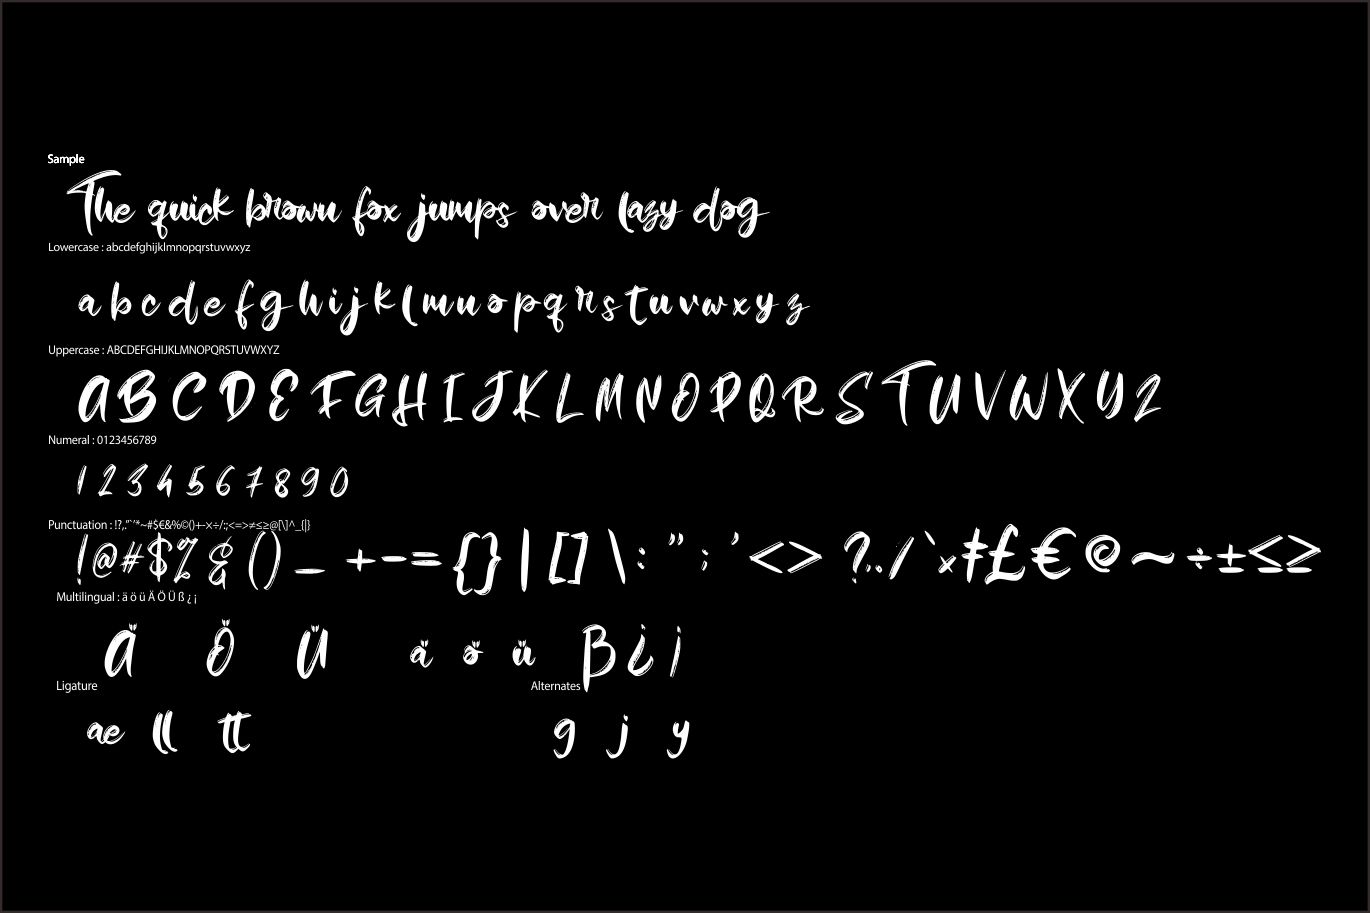 Sample
The quick brown fox jumps over lazy dog
Lowercase : abcdefghijklmnopqrstuvwxyz
a b c d e f g h i j k l m n o p q r s t u v w x y z
Uppercase : ABCDEFGHIJKLMNOPQRSTUVWXYZ
A B C D E F G H I J K L M N O P Q R S T U V W X Y Z
Numeral : 0123456789
1 2 3 4 5 6 7 8 9 0
Punctuation : !?,."`'*~#$€&%©()+-×÷/:;<=>≠≤≥@[\]^_{|}
! @ # $ % & ( ) _ + - = { } | [ ] \ : " ; ' < > ? , . / ` × ≠ £ € © ~ ÷ ± ≤ ≥
Multilingual : ä ö ü Ä Ö Ü ß ¿ ¡
Ä Ö Ü ä ö ü ß ¿ ¡
Ligature Alternates
ae ll tt g j y